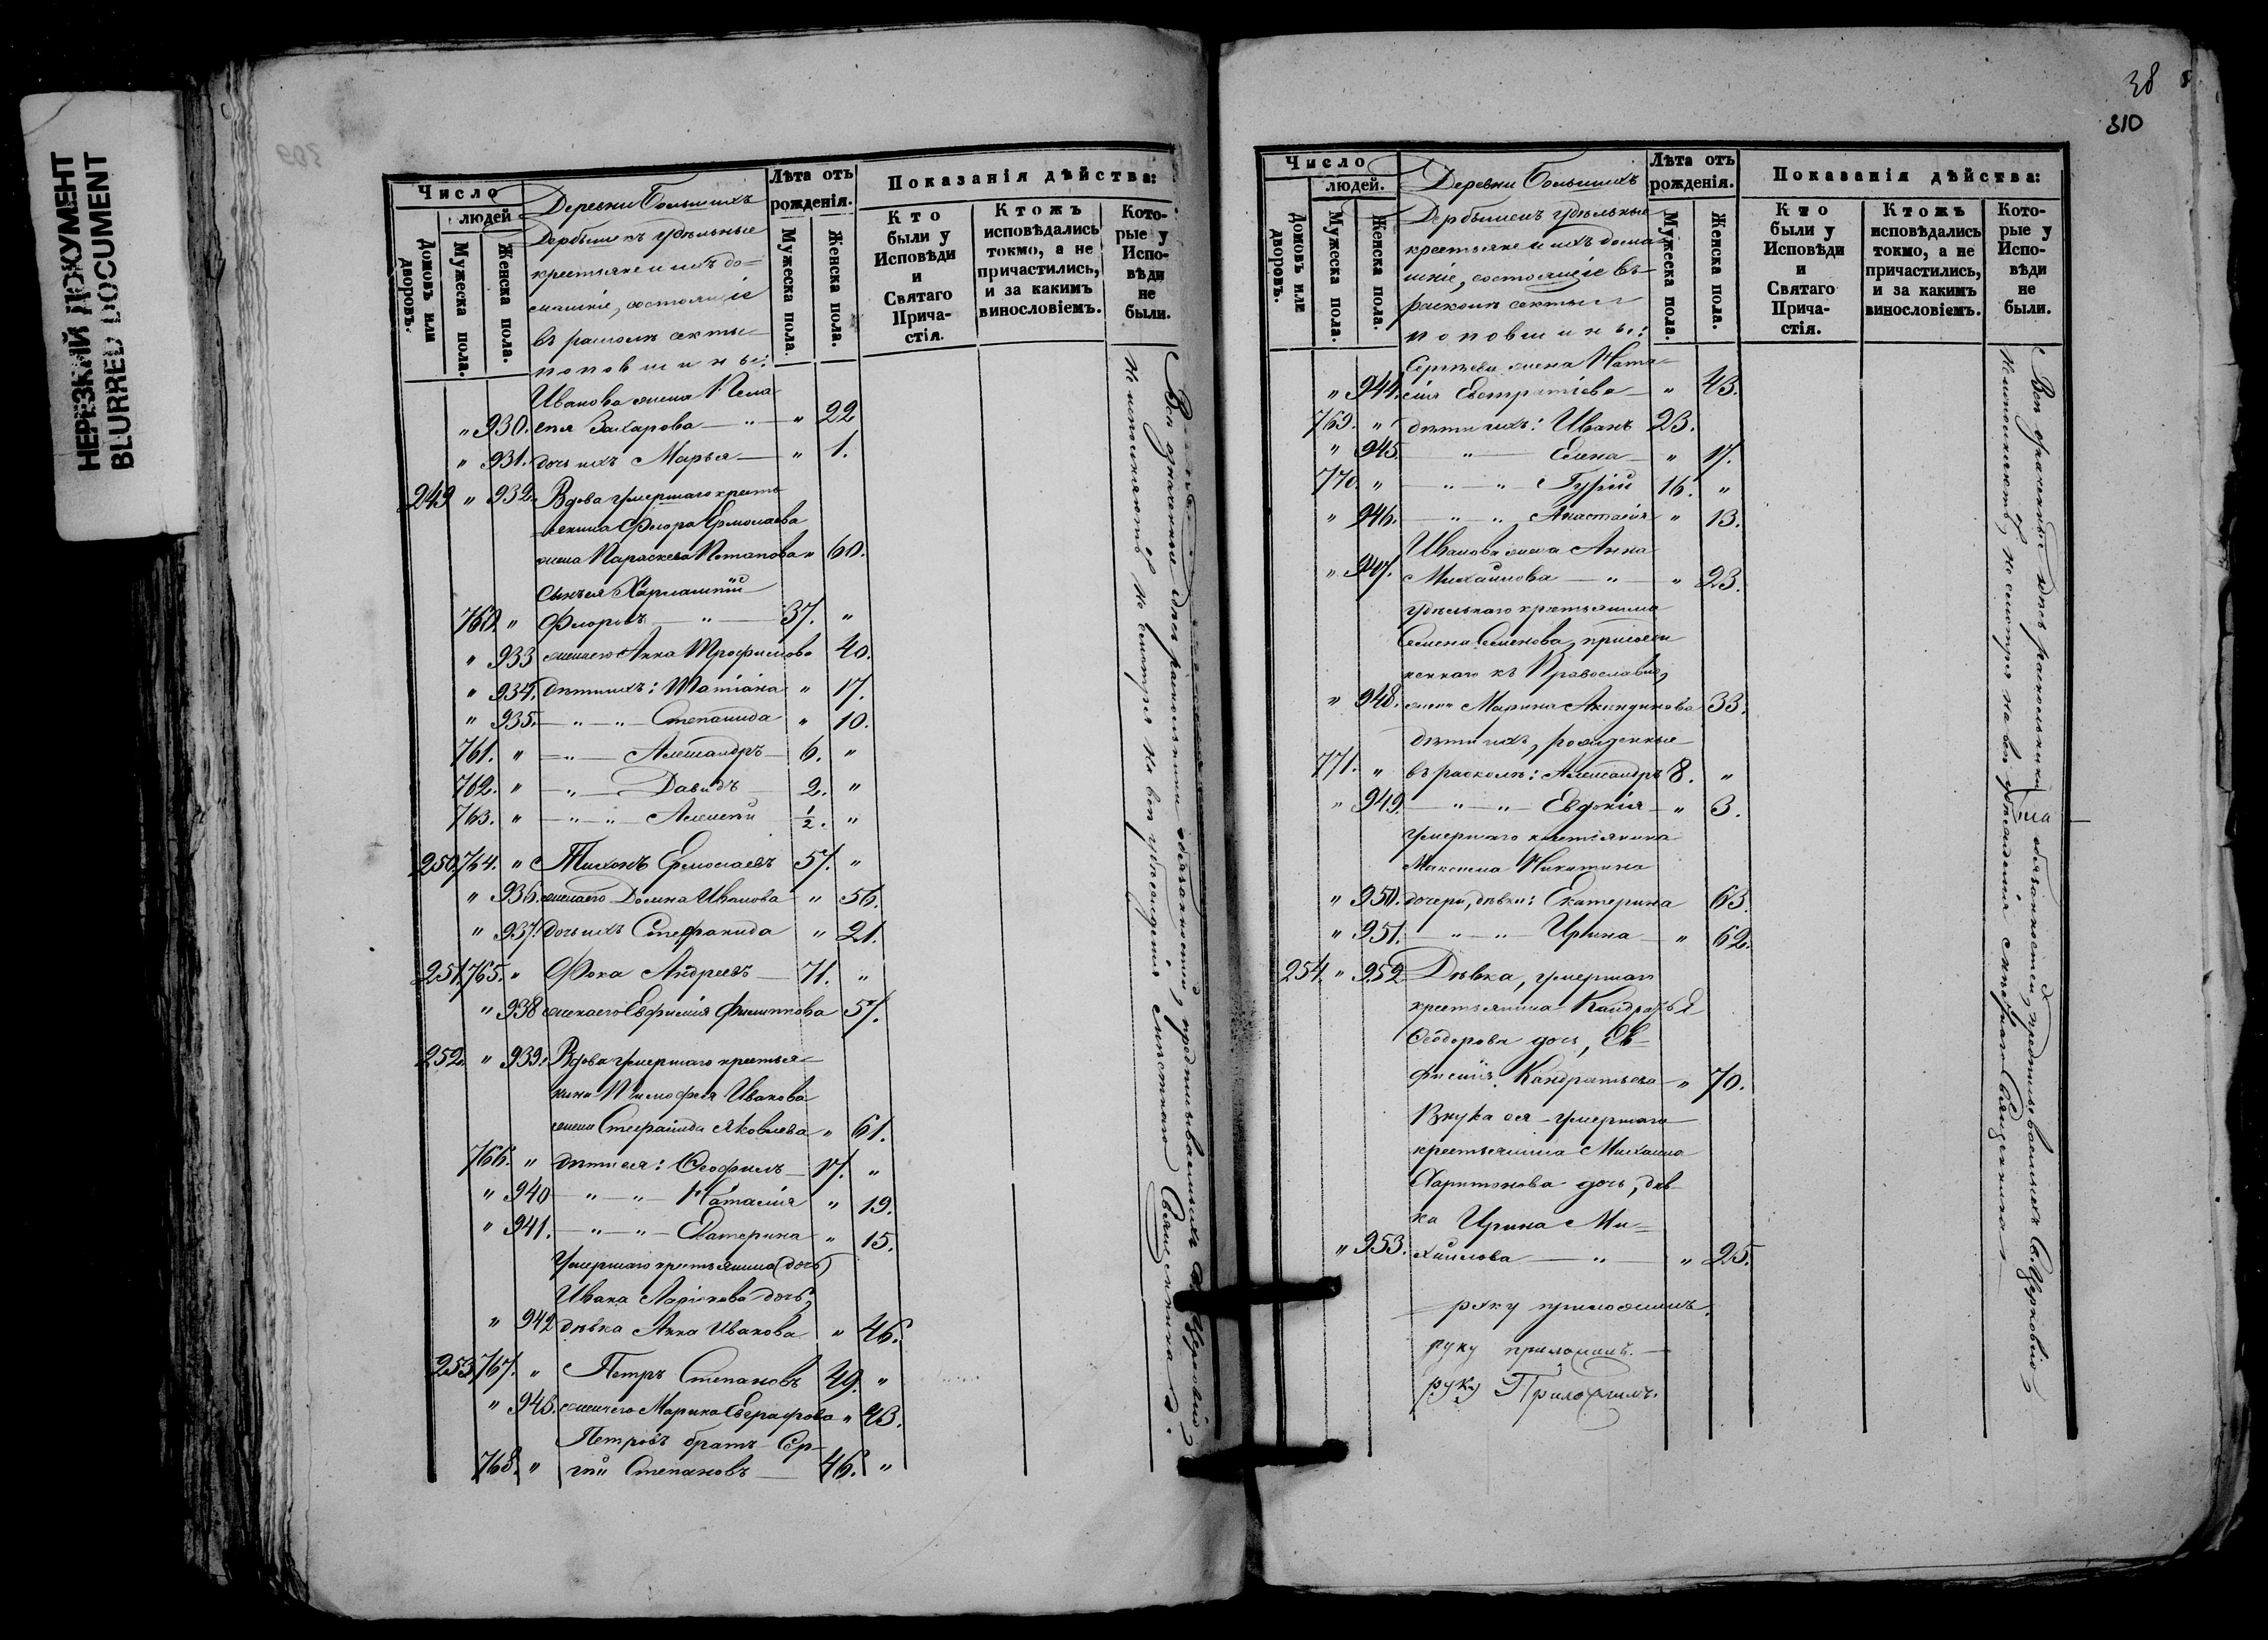 НЕРЕЗКИЙ ДОКУМЕНТ
BLURRED DOCUMENT
309
Число
людей
Домовъ или дворовъ.
Мужеска пола.
Женска пола.
Деревни Большихъ
Дербышекъ удѣльные
крестьяне и ихъ до=
машніе, состоящіе
въ расколѣ секты
поповщины:
Лѣта отъ рожденія.
Мужеска пола.
Женска пола.
Показанія дѣйства:
Кто были у Исповѣди и Святаго Прича-стія.
Ктожъ исповѣдались токмо, а не причастились, и за какимъ винословіемъ.
Кото-рые у Испо-вѣди не были.
Иванова жена Пела=
" 930. гея Захарова — " — " 22
" 931. дочь ихъ Марья — " 1.
249 " 932. Вдова умершаго кресть
янина Флора Ермолаева
жена Параскева Потапова " 60.
сынъ ея Харлампій
760. " Флоровъ — " — 37. "
" 933 жена его Анна Трофимова 40.
" 934. дѣти ихъ: Татіана " 17.
" 935. — " — " — Степанида " 10.
761. " — " — Александръ — 6. "
762. " — " — Давидъ — 2. "
763. " — " — " — Алексѣй ½. "
250. 764. " Тихонъ Ермолаевъ 57. "
" 936. жена его Домна Иванова " 56.
" 937. дочь ихъ Стефанида " 21.
251. 765. " Фока Андреевъ — 71. "
" 938 жена его Евфимія Филиппова 57.
252. " 939. Вдова умершаго крестья=
нина Тимофея Иванова
жена Стефанида Яковлева " 61.
766. " дѣти ея: Ѳеофилъ — 17. "
" 940 — " — " — Наталія " 19.
" 941. — " — " — Екатерина " 15.
Умершаго крестьянина (дочь)
Ивана Ларіонова дочь,
" 942 дѣвка Анна Иванова " 46.
253. 767. " Петръ Степановъ 49. "
" 943. жена его Марина Евграфова " 43.
Петровъ братъ Сер-
768. " гѣй Степановъ — 46. "
Всѣ означенные здѣсь раскольники обязанностей, предписываемыхъ Св. Церковію,
не исполняютъ, не смотря на всѣ убѣжденія мѣстнаго Священника.
38
310
Число
людей.
Домовъ или дворовъ.
Мужеска пола.
Женска пола.
Деревни Большихъ
Дербышекъ удѣльные
крестьяне и ихъ дома=
шніе, состоящіе въ
расколѣ секты
поповщины:
Лѣта отъ рожденія.
Мужеска пола.
Женска пола.
Показанія дѣйства:
Кто были у Исповѣди и Святаго Прича-стія.
Ктожъ исповѣдались токмо, а не причастились, и за какимъ винословіемъ.
Кото-рые у Испо-вѣди не были.
Сергѣева жена Ната=
" 944. лія Евстратіева — " 43.
769. " дѣти ихъ: Иванъ 23.
" 945. — " — Елена — " 17.
770. " — " — " — Гурій 16. "
" 946. — " — " — Анастасія " 13.
Иванова жена Анна
" 947. Михайлова — " — " 23.
удѣльнаго крестьянина
Семена Семенова, присоеди
неннаго къ Православію,
" 948. жена Марина Акиндинова 33.
дѣти ихъ, рожденные
771. " въ расколѣ: Александръ 8. "
" 949. — " — " — Евдокія — " 3.
умершаго крестьянина
Максима Никитина
" 950. дочери, дѣвки: Екатерина 63.
" 951. — " — " — Ирина — " 62.
254. " 952 Дѣвка, умершаго
крестьянина Кандратья
Ѳеодорова дочь, Ев-
фимія Кандратьева — " 70.
Внука ея — умершаго
крестьянина Михаила
Харитонова дочь, дѣв-
ка Ирина Ми=
" 953. хайлова — " — " 25.
руку приложилъ.
руку приложилъ. —
руку Приложилъ.
Всѣ означенные здѣсь раскольники обязанностей, предписываемыхъ Св. Церковію,
не исполняютъ, не смотря на всѣ убѣжденія мѣстнаго Священника. —